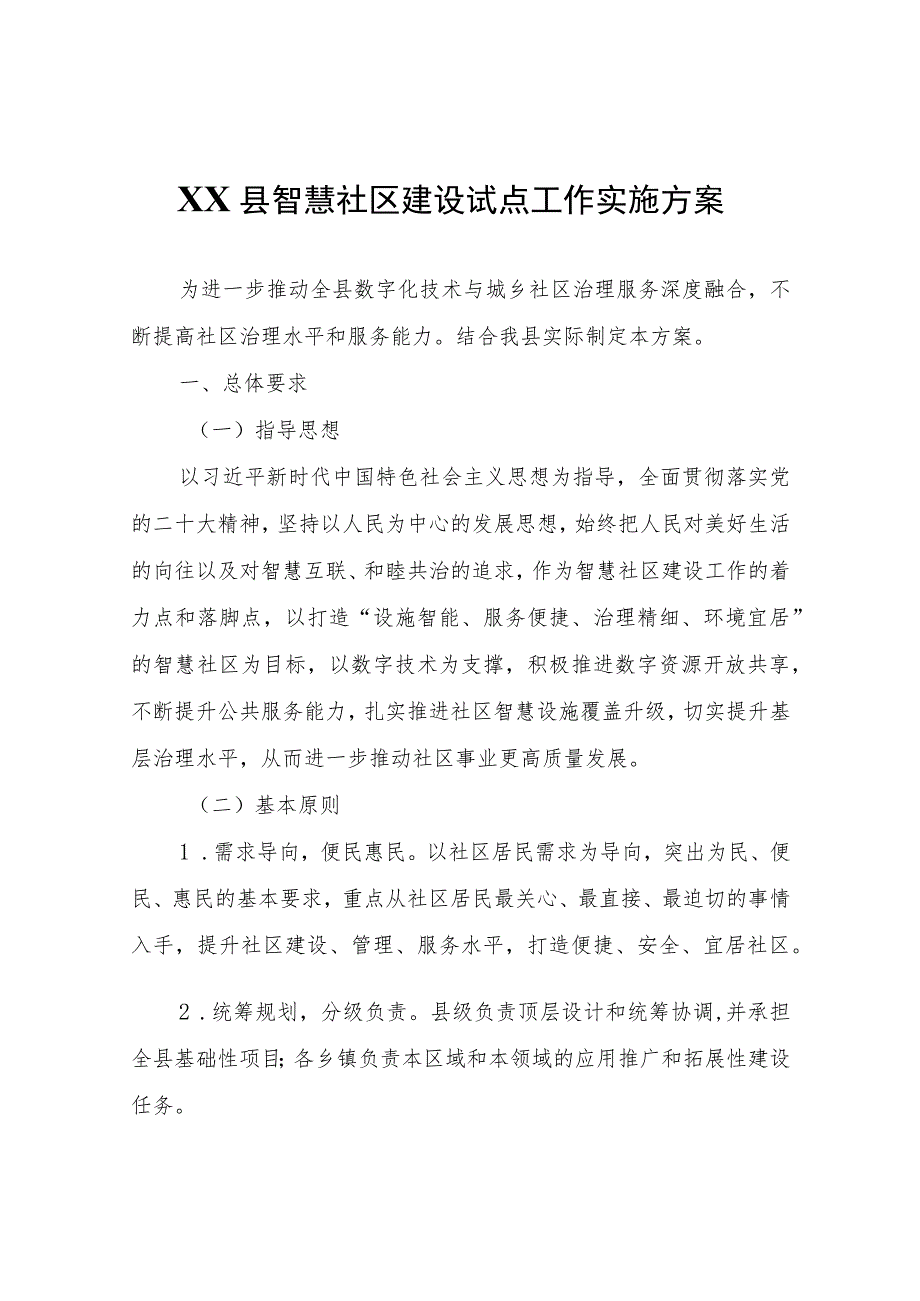 XX县智慧社区建设试点工作实施方案
为进一步推动全县数字化技术与城乡社区治理服务深度融合，不
断提高社区治理水平和服务能力。结合我县实际制定本方案。
一、总体要求
（一）指导思想
以习近平新时代中国特色社会主义思想为指导，全面贯彻落实党
的二十大精神，坚持以人民为中心的发展思想，始终把人民对美好生活
的向往以及对智慧互联、和睦共治的追求，作为智慧社区建设工作的着
力点和落脚点，以打造“设施智能、服务便捷、治理精细、环境宜居”
的智慧社区为目标，以数字技术为支撑，积极推进数字资源开放共享，
不断提升公共服务能力，扎实推进社区智慧设施覆盖升级，切实提升基
层治理水平，从而进一步推动社区事业更高质量发展。
（二）基本原则
1.需求导向，便民惠民。以社区居民需求为导向，突出为民、便
民、惠民的基本要求，重点从社区居民最关心、最直接、最迫切的事情
入手，提升社区建设、管理、服务水平，打造便捷、安全、宜居社区。
2.统筹规划，分级负责。县级负责顶层设计和统筹协调,并承担
全县基础性项目;各乡镇负责本区域和本领域的应用推广和拓展性建设
任务。